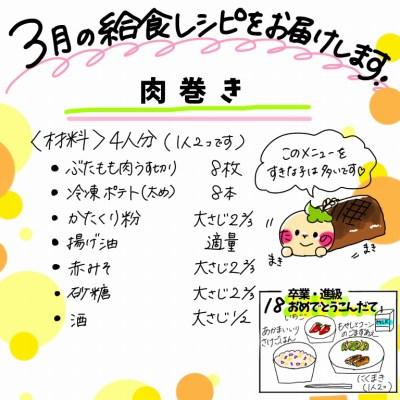 3月の給食レシピをお届けします!
肉巻き
〈材料〉4人分(1人2つです)
• ぶたもも肉うす切り 8枚
• 冷凍ポテト(太め) 8本
• かたくり粉 大さじ2 2/3
• 揚げ油 適量
• 赤みそ 大さじ2 2/3
• 砂糖 大さじ2 2/3
• 酒 大さじ1/2
このメニューを
すきな子は多いです♡
まき
まき
18
卒業・進級
おめでとうこんだて
いちご
あかまいいり
さけごはん
もやしとコーン
のごまずあえ
にくまき
(1人2コ)